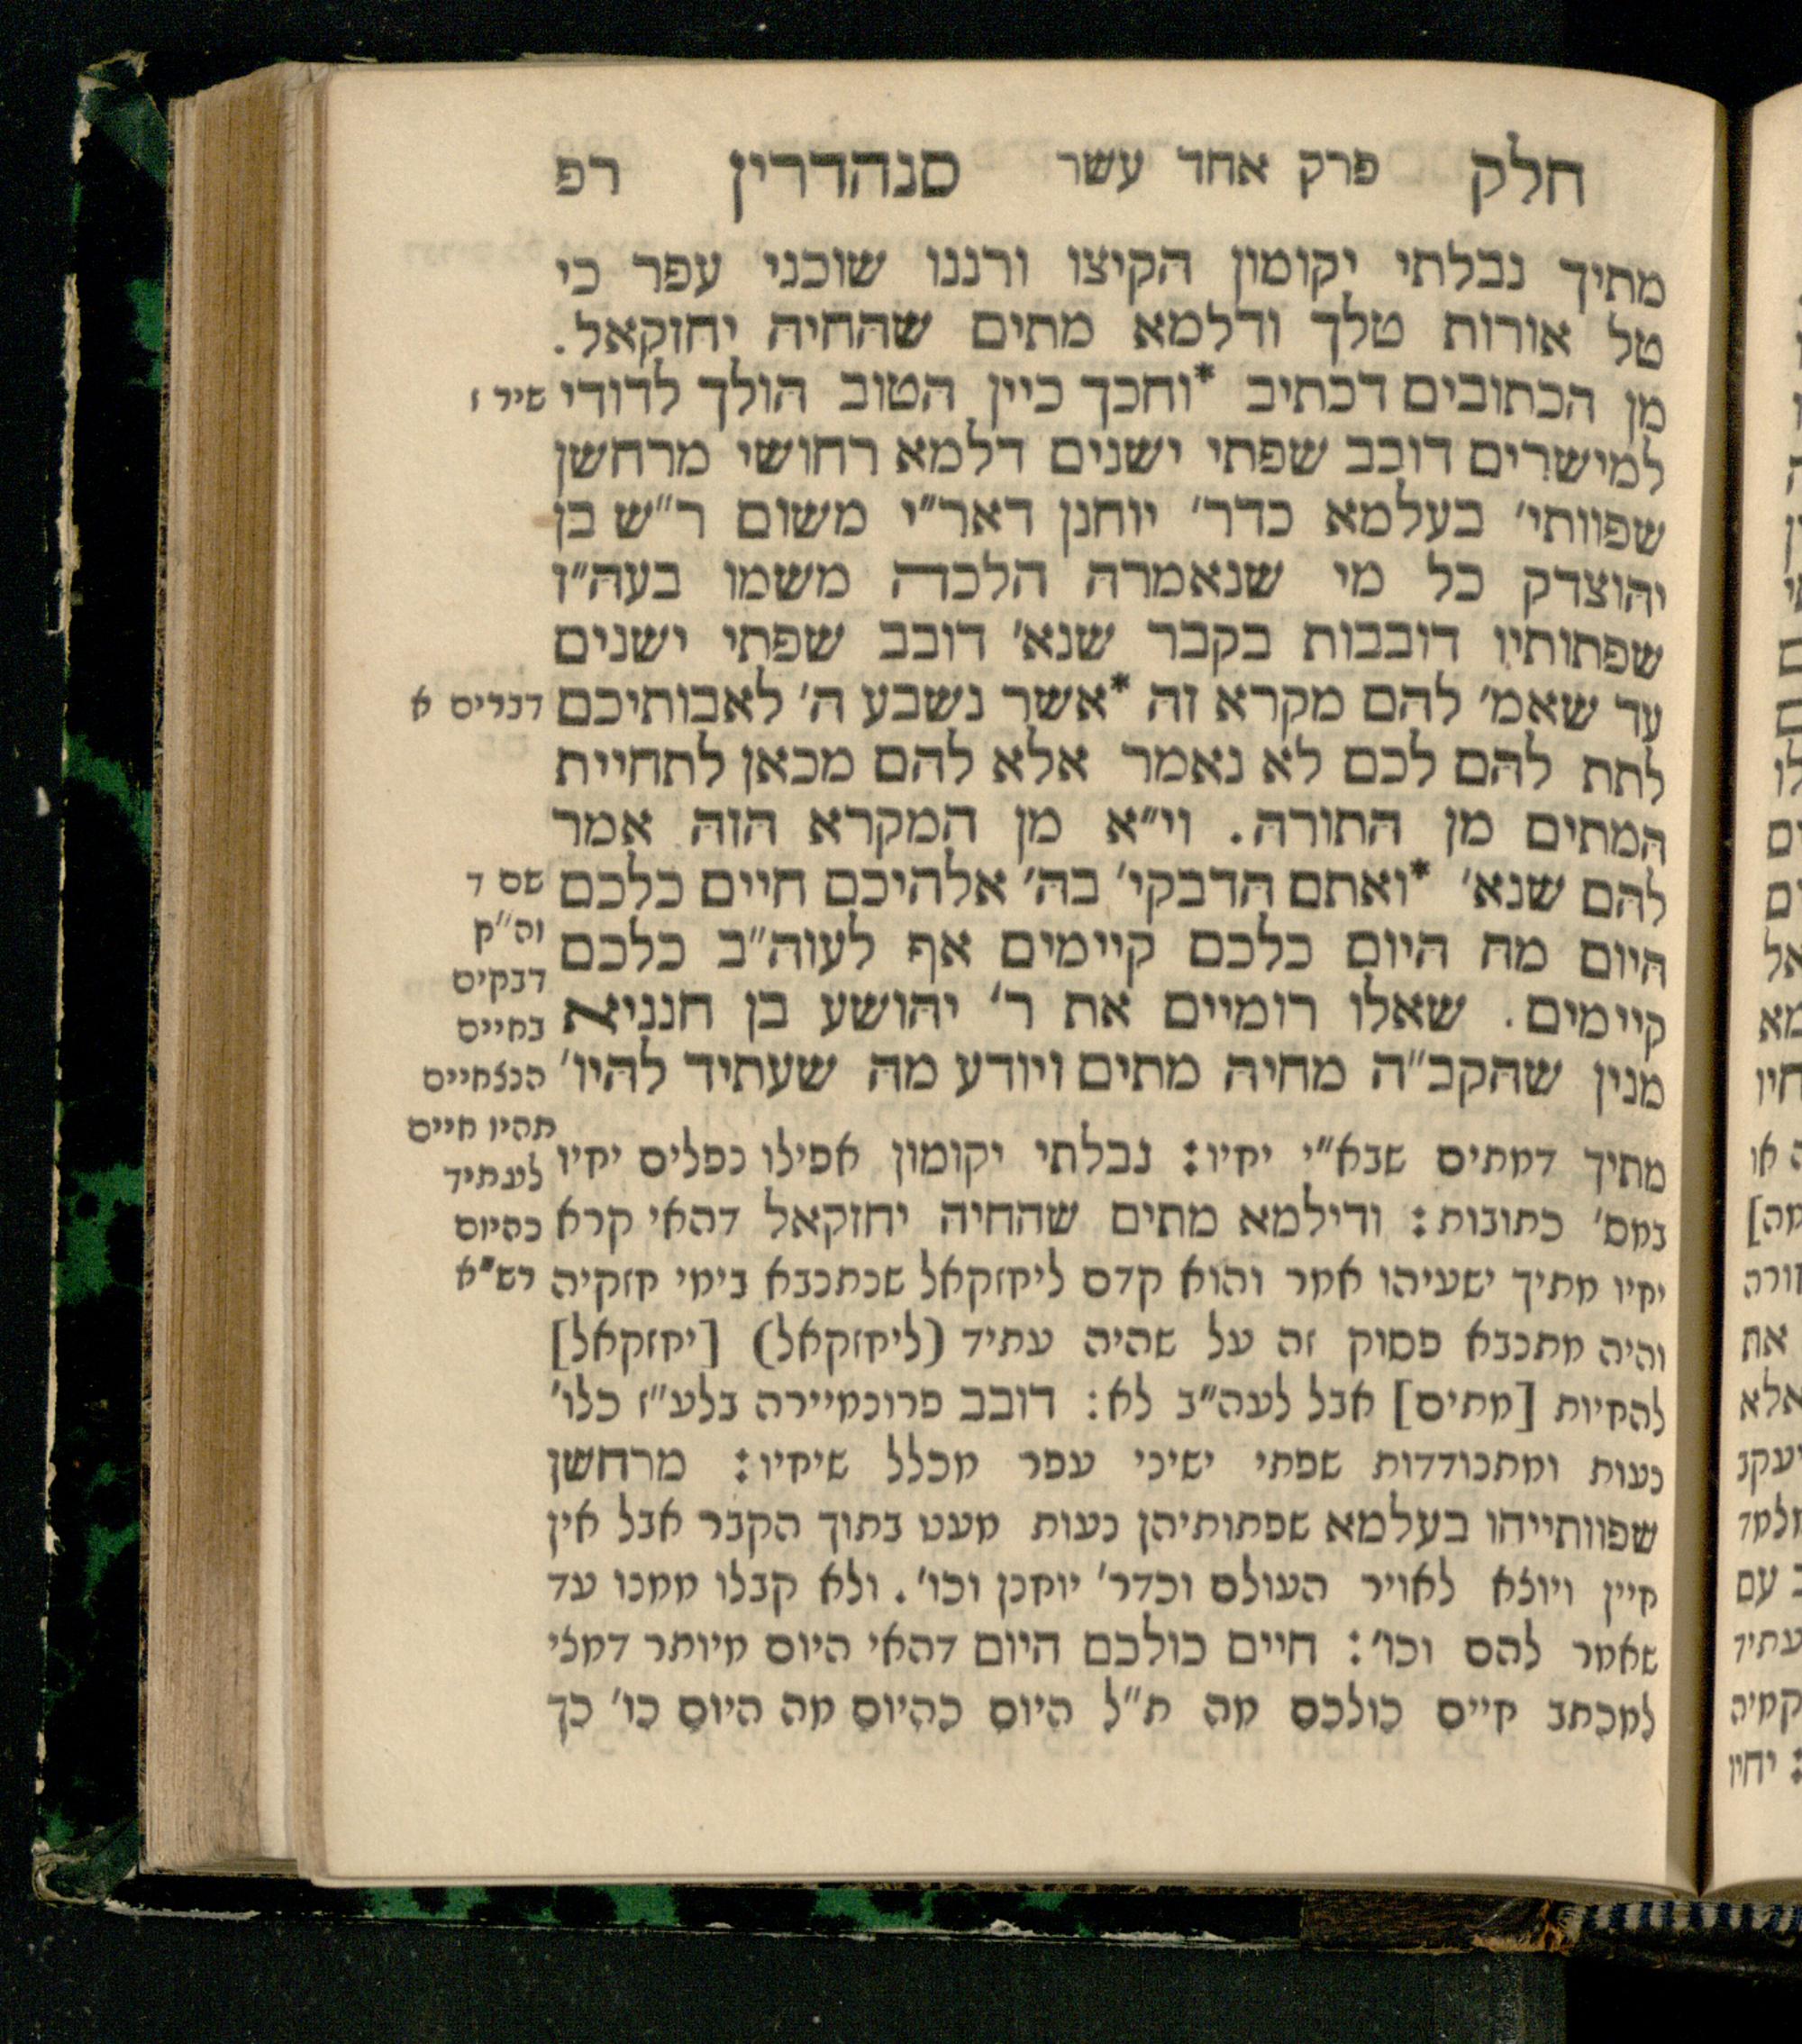 חלק פרק אחד עשר סנהדרין רפ
מתיך נבלתי יקומון הקיצו ורננו שוכני עפר כי
טל אורות טלך ודלמא מתים שהחיה יחזקאל.
מן הכתובים דכתיב *וחכך כיין הטוב הולך לדודי
למישרים דובב שפתי ישנים דלמא רחושי מרחשן
שפוותי׳ בעלמא כדר׳ יוחנן דאר״י משום ר״ש בן
יהוצדק כל מי שנאמרה הלכה משמו בעה״ז
שפתותיו דובבות בקבר שנא׳ דובב שפתי ישנים
עד שאמ׳ להם מקרא זה *אשר נשבע ה׳ לאבותיכם
לתת להם לכם לא נאמר אלא להם מכאן לתחיית
המתים מן התורה. וי״א מן המקרא הזה אמר
להם שנא׳ *ואתם הדבקי׳ בה׳ אלהיכם חיים כלכם
היום מה היום כלכם קיימים אף לעוה״ב כלכם
קיימים. שאלו רומיים את ר׳ יהושע בן חנניא
מנין שהקב״ה מחיה מתים ויודע מה שעתיד להיו׳
מתיך דמתים שבא״י יחיו: נבלתי יקומון אפילו נפלים יחיו
במס׳ כתובות: ודילמא מתים שהחיה יחזקאל דהאי קרא
יחיו מתיך ישעיהו אמר והוא קדם ליחזקאל שנתנבא בימי חזקיה
והיה מתנבא פסוק זה על שהיה עתיד (ליחזקאל) [יחזקאל]
להחיות [מתים] אבל לעה״ב לא: דובב פרונמיירה בלע״ז כלו׳
נעות ומתנודדות שפתי ישיני עפר מכלל שיחיו: מרחשן
שפוותייהו בעלמא שפתותיהן נעות מעט בתוך הקבר אבל אין
חיין ויוצא לאויר העולם וכדר׳ יוחנן וכו׳. ולא קבלו ממנו עד
שאמר להם וכו׳: חיים כולכם היום דהאי היום מיותר דמצי
למכתב חיים כולכם מה ת״ל היום כהיום מה היום כו׳ כך
שיר ז
דברים א
שם ד
וה״ק
דבקים
בחיים
הנצחיים
תהיו חיים
לעתיד
כהיום
רש״א